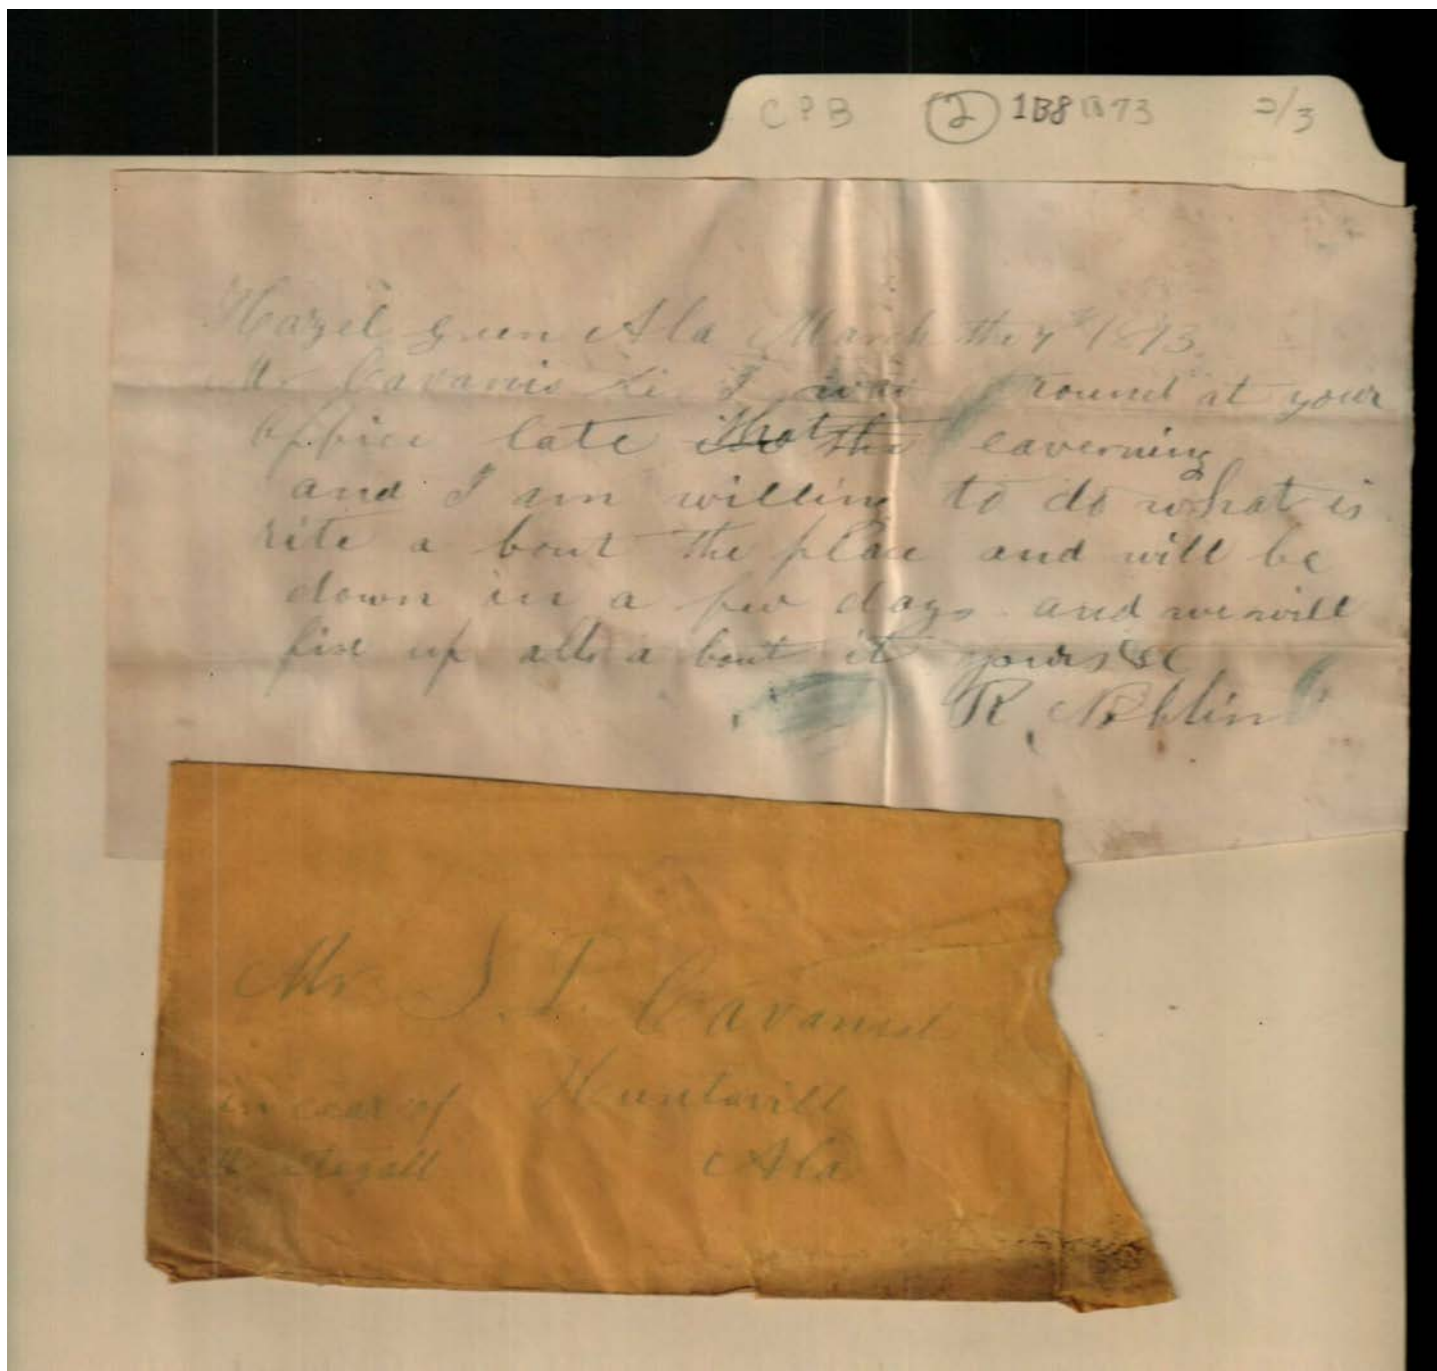 CPB 2 1B8 1873 2/3
Hazel green Ala March the 7th 1873
Mr Cavanis I was round at your
office late that the eaverning
and I am willing to do what is
rite a bout the place and will be
down in a few days and we will
fix up all a bout it yours &c
R. Noblin
Mr S. T. Cavanis
in care of Huntsvill
Ala